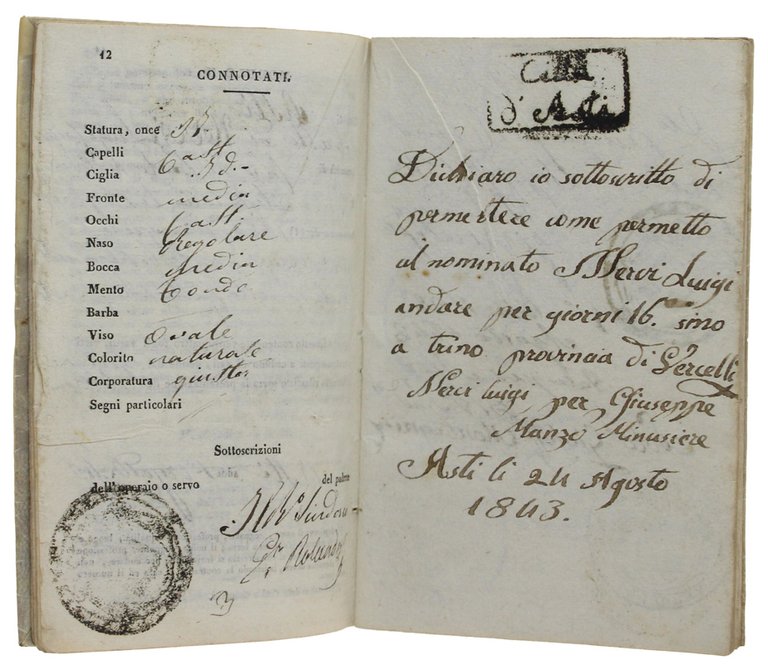 12
CONNOTATI.
Statura, once 38.
Capelli Cast.
Ciglia Id.
Fronte media
Occhi Cast.
Naso Regolare
Bocca media
Mento tondo
Barba
Viso Ovale
Colorito naturale
Corporatura giusta
Segni particolari
Sottoscrizioni
dell'operaio o servo del
Città
d'Asti
Dichiaro io sottoscritto di
permettere come permetto
al nominato Nervi Luigi
andare per giorni 16. sino
a trino provincia di Vercelli
Nervi luigi per Giuseppe
Manzo Minusiere
Asti li 24 Agosto
1843.